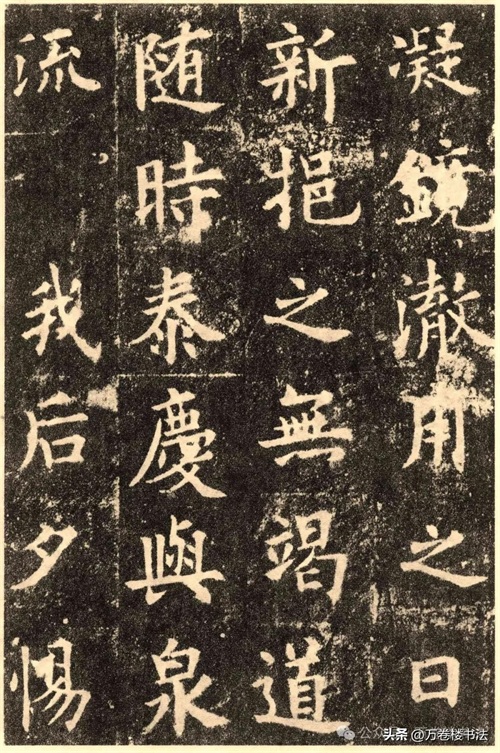 凝鏡澈用之日
新挹之無竭道
随時泰慶與泉
流 我后夕惕
头条 @万卷楼书法